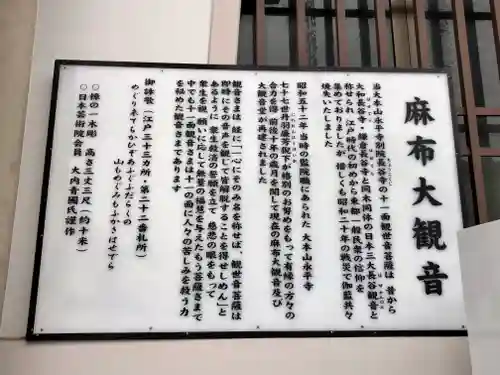 麻布大観音
当大本山永平寺別院長谷寺の十一面観世音菩薩は 昔から
大和長谷寺・鎌倉長谷寺と同木同体の日本三大長谷観音と
称せられ 江戸時代の初めから東都一般民衆の信仰を
集めておりましたが 惜しくも昭和二十年の戦災で伽藍共々
焼失いたしました
昭和五十二年 当時の監院職にあられた 大本山永平寺
七十七世丹羽廉芳猊下が格別のお努めをもって有縁の方々の
合力を得 前後十年の歳月を閲して現在の麻布大観音及び
大観音堂が再建されました
観音さまは 経に「一心にそのみ名を称せば、観世音菩薩は
即時にその音声を観じて皆解脱することを得せしめん」と
あるように 衆生救済の誓願を立て 慈悲の眼をもって
衆生を視 願いに応じて無量の福慧を与えたもう菩薩さまで
中でも十一面観音さまは十一の面に人々の苦しみを救う力
を秘めた観音さまであります
御詠歌(江戸三十三カ所・第二十二番札所)
めぐり来てちかひぞあふぐふだらくの
山もめぐみもふかきはせでら
○樟の一木彫 高さ三丈三尺(約十米)
○日本芸術院会員 大内青圃氏謹作